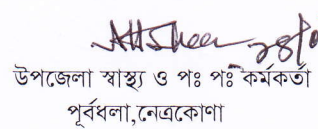 উপজেলা স্বাস্থ্য ও পঃ পঃ কর্মকর্তা
পূর্বধলা,নেত্রকোণা